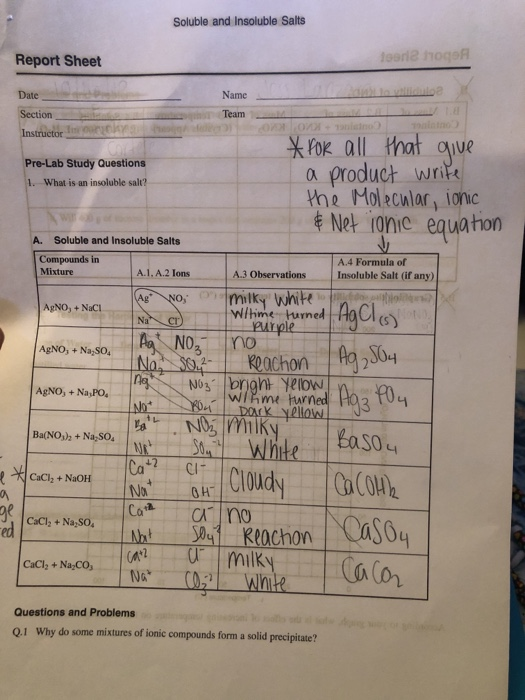 Soluble and Insoluble Salts
Report Sheet
Date
Name
Section
Team
Instructor
* For all that give
a product write
the Molecular, ionic
& Net ionic equation
Pre-Lab Study Questions
1. What is an insoluble salt?
A. Soluble and Insoluble Salts
Compounds in Mixture
A.1, A.2 Ions
A.3 Observations
A.4 Formula of Insoluble Salt (if any)
AgNO₃ + NaCl
Ag⁺ NO₃⁻
Na⁺ Cl⁻
milky white
w/time turned
purple
AgCl(s)
AgNO₃ + Na₂SO₄
Ag⁺ NO₃⁻
Na₂⁺ SO₄²⁻
no
Reaction
Ag₂SO₄
AgNO₃ + Na₃PO₄
Ag⁺ NO₃⁻
Na⁺
bright yellow
w/time turned
Dark yellow
Ag₃PO₄
Ba(NO₃)₂ + Na₂SO₄
Ba⁺² NO₃⁻
Na⁺ SO₄⁻²
milky
white
BaSO₄
* CaCl₂ + NaOH
Ca⁺² Cl⁻
Na⁺ OH⁻
Cloudy
Ca(OH)₂
CaCl₂ + Na₂SO₄
Ca⁺² Cl⁻
Na⁺ SO₄⁻²
no
Reaction
CaSO₄
CaCl₂ + Na₂CO₃
Ca⁺² Cl⁻
Na⁺ CO₃⁻²
milky
white
Questions and Problems
Q.1 Why do some mixtures of ionic compounds form a solid precipitate?